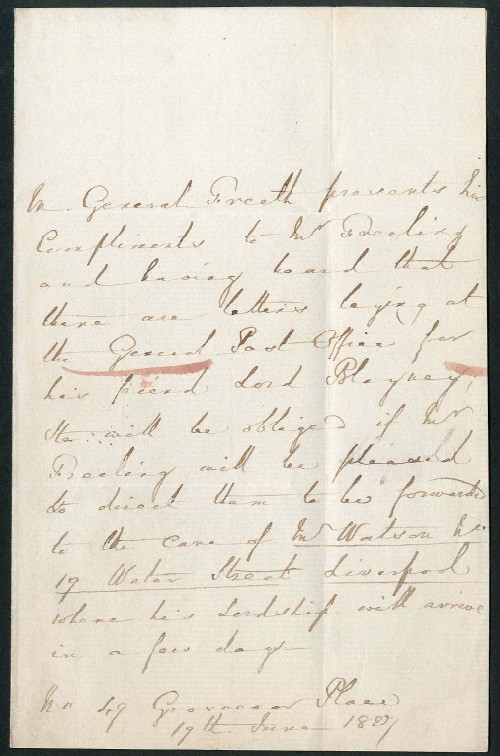 M. General Freeth presents his
Compliments to Mr Freeling
and having heard that
there are letters laying at
the General Post Office for
his friend Lord Blayney,
He will be obliged if Mr
Freeling will be pleased
to direct them to be forwarded
to the care of Mr Watson No
19 Water Street Liverpool
where his Lordship will arrive
in a few days
No 49 Grosvenor Place
19th June 1827